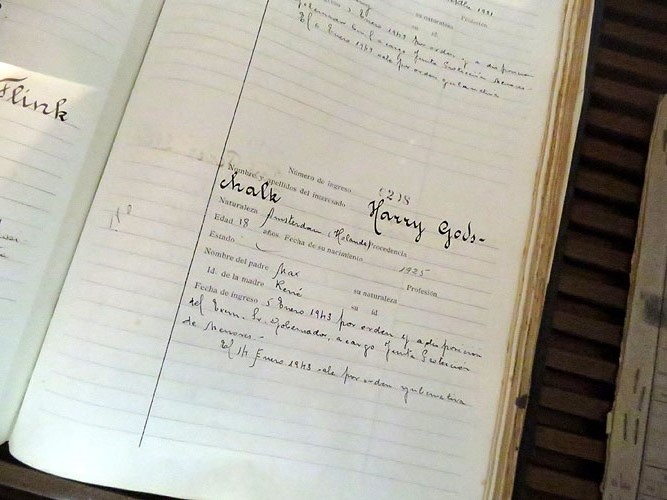 1921
su naturaleza Profesión
id
ingreso 5 Enero 1943 por orden y a disposición
Gobernador Civil a cargo Junta Protección Menores
El 6 Enero 1943 sale por orden gubernativa
Flink
Número de ingreso 238
Nombre y apellidos del interesado Harry Gods-
chalk
Naturaleza Amsterdam (Holanda) Procedencia
Edad 18 años Fecha de su nacimiento 1925
Estado Profesión
Nombre del padre Max su naturaleza
Id. de la madre René su id
Fecha de ingreso 5 Enero 1943 por orden y a disposición
del Excm. Sr. Gobernador, a cargo Junta Protección
de Menores.-
El 14 Enero 1943 sale por orden gubernativa